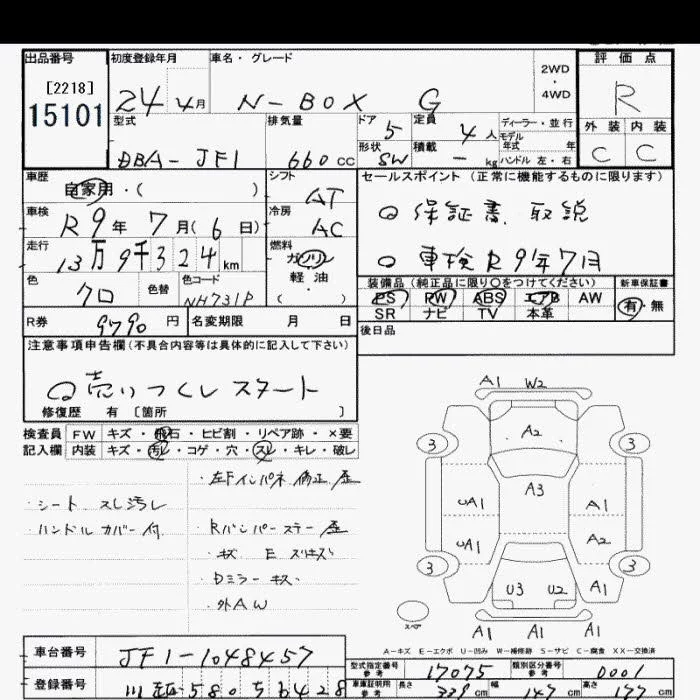 出品番号 初度登録年月 車名・グレード 2WD・4WD 評価点
[2218]
15101
24年4月 N-BOX G R
型式 排気量 ドア 5 定員 4人 ディーラー・並行 外装 内装
モデル年式 年
DBA-JF1 660cc 形状 SW 積載 - kg ハンドル 左・右 C C
車歴 自家用・( ) シフト AT セールスポイント (正常に機能するものに限ります)
車検 R9年7月(6日) 冷房 AC ○保証書 取説
走行 13万9千324km 燃料 ガソリン ○車検R9年7月
軽油
( )
色 クロ 色替 色コード NH731P 装備品(純正品に限り〇をつけてください) 新車保証書
PS PW ABS エアB AW 有・無
SR ナビ TV 本革
R券 9790円 名変期限 月 日 後日品
注意事項申告欄(不具合内容等は具体的に記入して下さい)
○売りつくしスタート
修復歴 有 [箇所 ]
検査員 FW キズ・飛石・ヒビ割・リペア跡・×要
記入欄 内装 キズ・汚れ・コゲ・穴・スレ・キレ・破レ
・左Fインパネ 修正 歪
・シート スレ汚レ
・ハンドルカバー付 ・Rバンパーステー歪
・キズ E スリキズ
・Dミラー キズ
・外AW
A1 W2
A2
3 3
A3
UA1 A1
UA1 A2
3 3
U3 U2 A1
A1 A1 A1
スペア
A-キズ E-エクボ U-凹み W-補修跡 S-サビ C-腐食 XX-交換済
車台番号 JF1-1048457
型式指定番号 参考 17075 類別区分番号 参考 0001
登録番号 580 車庫証明用 参考 長さ 339cm 幅 147cm 高さ 177cm